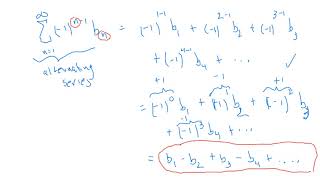 ∞
∑ (-1)^{n-1} b_n = (-1)^{1-1} b_1 + (-1)^{2-1} b_2 + (-1)^{3-1} b_3
n=1
alternating
series
+ (-1)^{4-1} b_4 + ... ✓
+1 -1 +1
= (-1)^0 b_1 + (-1)^1 b_2 + (-1)^2 b_3
-1
+ (-1)^3 b_4 + ...
= b_1 - b_2 + b_3 - b_4 + ....